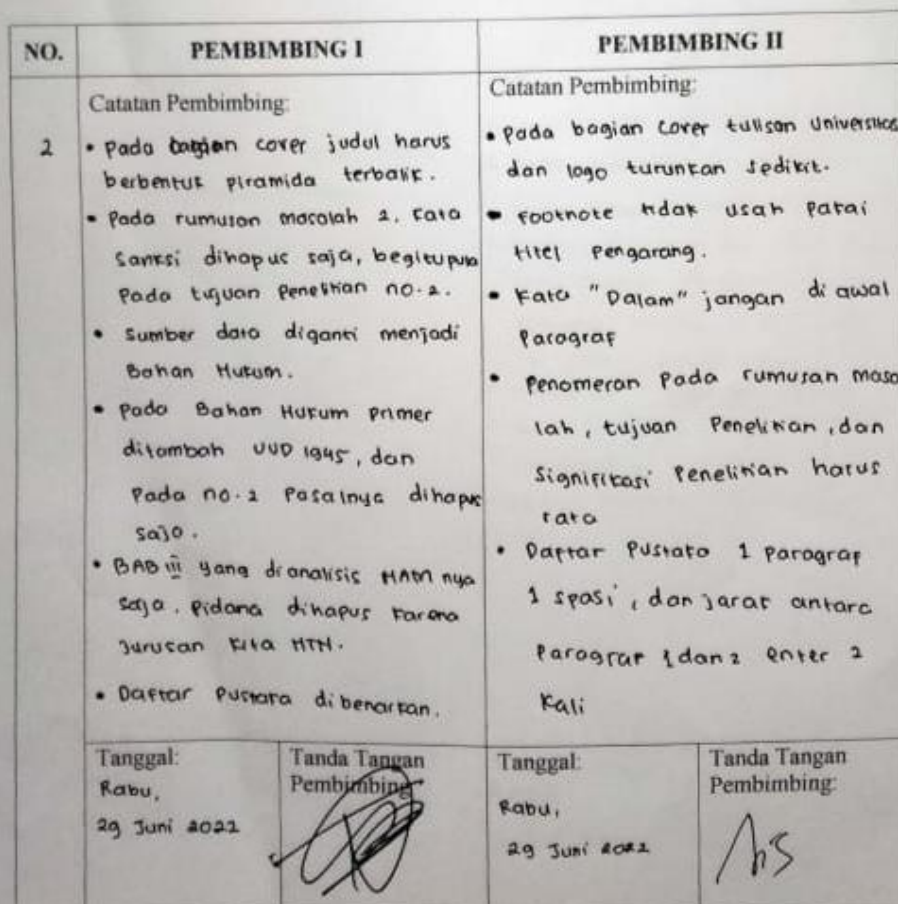 NO.
PEMBIMBING I
PEMBIMBING II
2
Catatan Pembimbing:
• Pada bagian cover judul harus
berbentuk piramida terbalik.
• Pada rumusan masalah 2. Kata
Sanksi dihapus saja, begitupula
Pada tujuan Penelitian no.2.
• Sumber data diganti menjadi
Bahan Hukum.
• Pada Bahan Hukum Primer
ditambah UUD 1945, dan
Pada no.2 Pasalnya dihapus
Sajo.
• BAB iii yang dianalisis HAM nya
saja, Pidana dihapus karena
Jurusan kita HTN.
• Daftar Pustaka dibenarkan.
Catatan Pembimbing:
• Pada bagian cover tulisan Universitas
dan logo turunkan sedikit.
• Footnote tidak usah Pakai
titel Pengarang.
• Kata "Dalam" jangan di awal
Paragraf
• Penomeran Pada rumusan masa
lah, tujuan Penelitian, dan
Signifikasi Penelitian harus
rata
• Daftar Pustaka 1 paragraf
1 spasi, dan jarak antara
Paragraf 1 dan 2 enter 2
Kali
Tanggal:
Rabu,
29 Juni 2022
Tanda Tangan
Pembimbing
Tanggal:
Rabu,
29 Juni 2022
Tanda Tangan
Pembimbing: